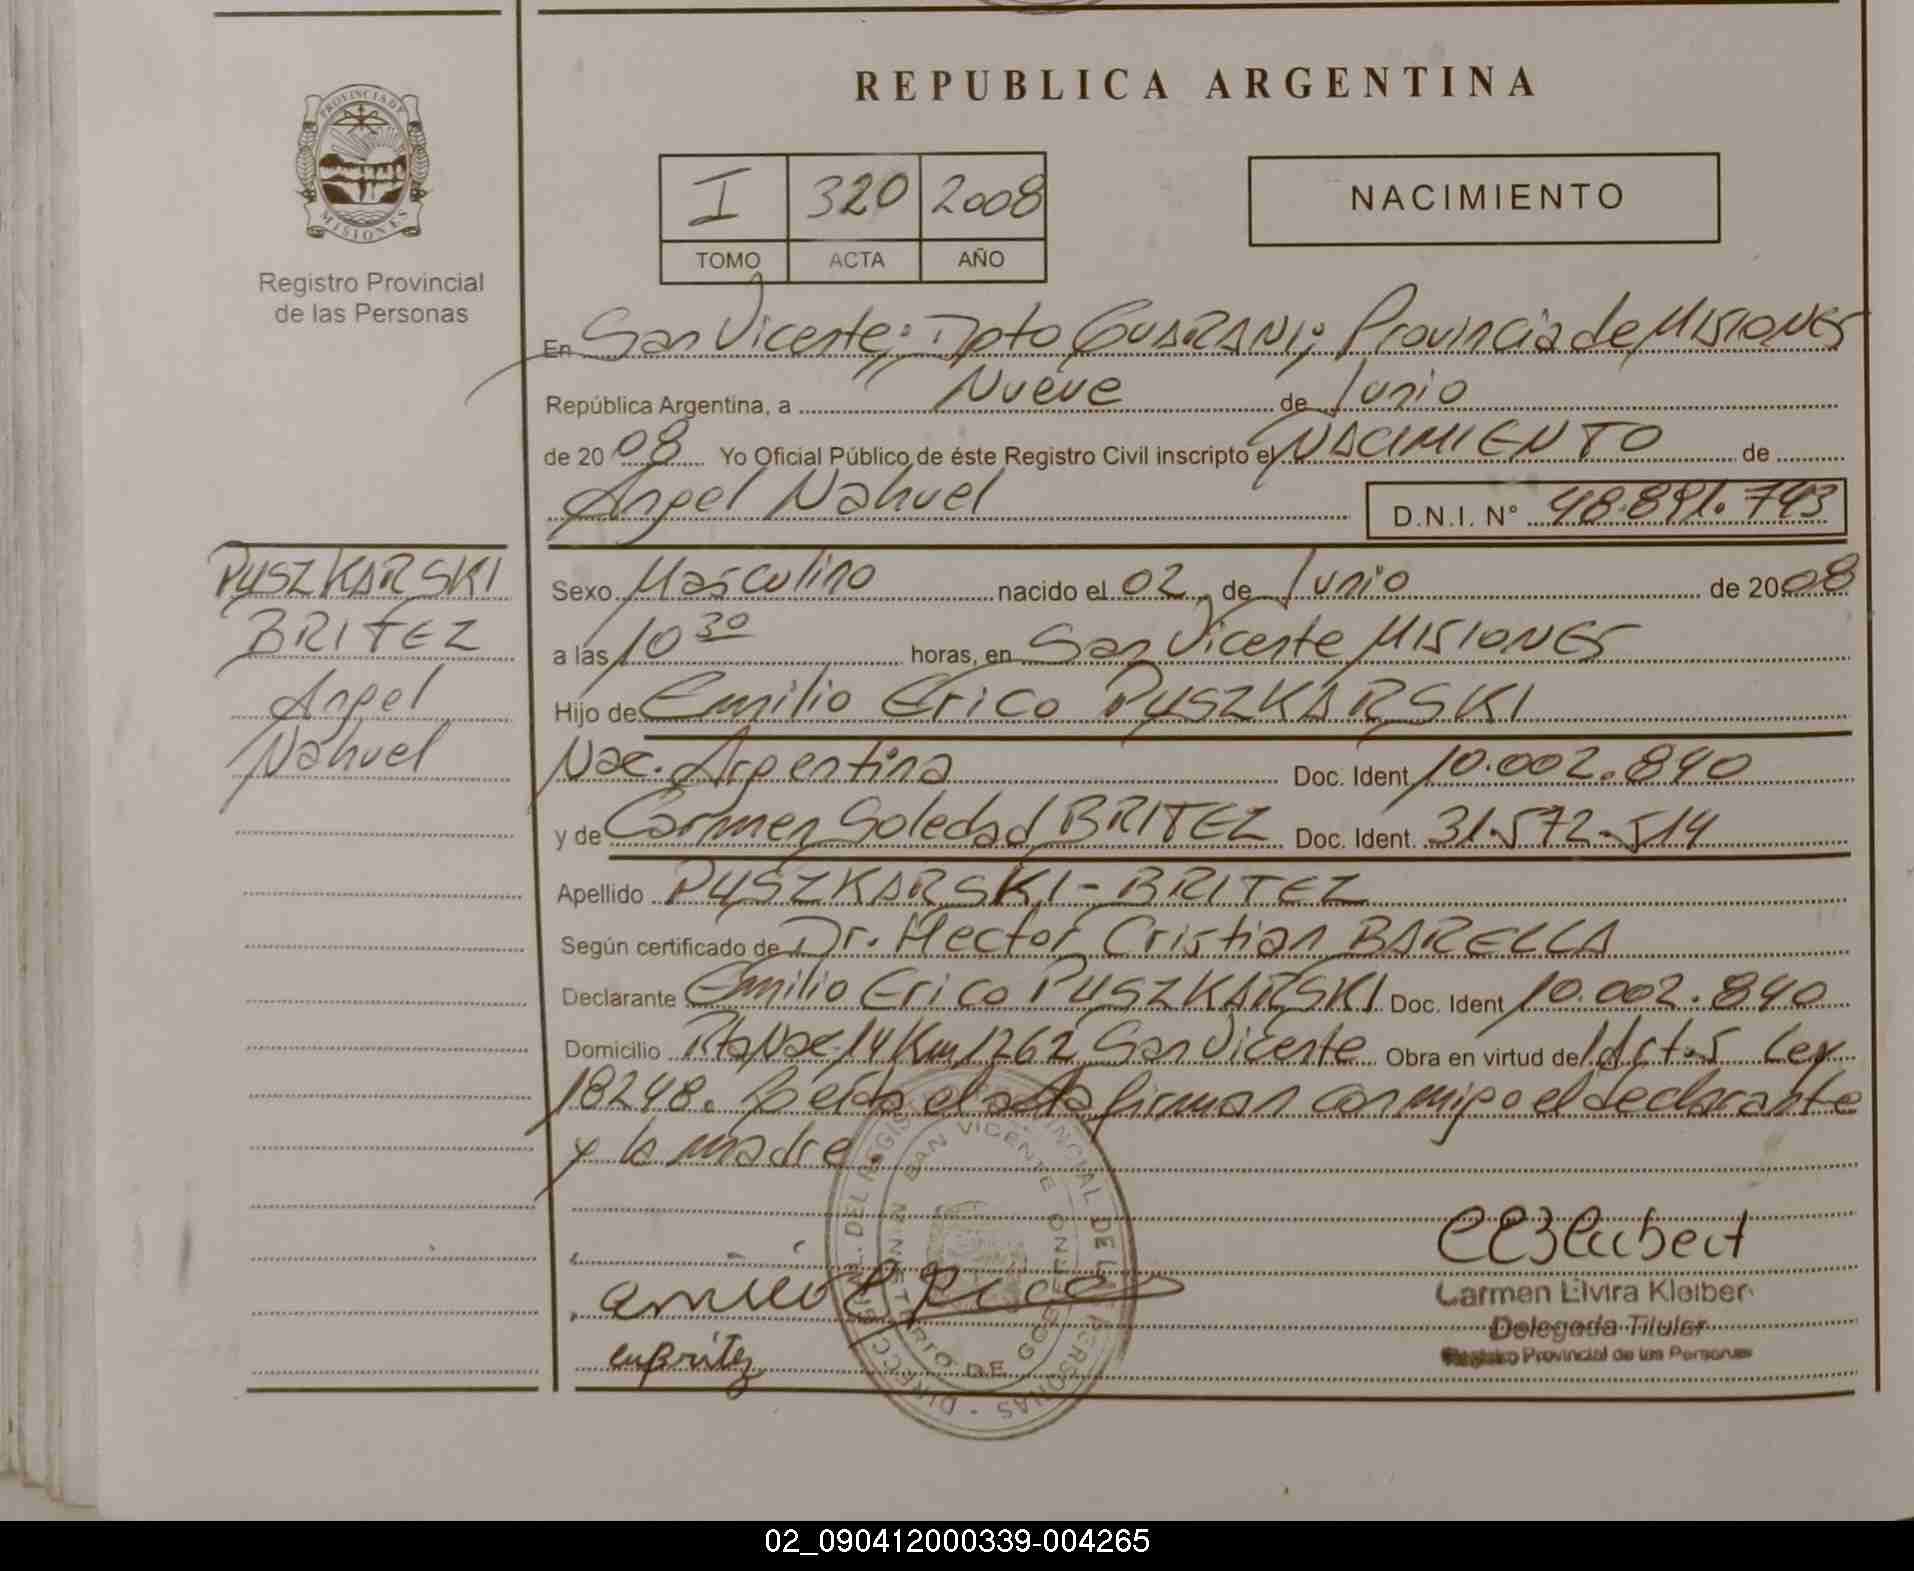 REPUBLICA ARGENTINA
PROVINCIA DE MISIONES
Registro Provincial
de las Personas
I 320 2008
TOMO ACTA AÑO
NACIMIENTO
En San Vicente; Dpto GUARANI; Provincia de MISIONES
República Argentina, a Nueve de Junio
de 2008 Yo Oficial Público de éste Registro Civil inscripto el NACIMIENTO de
Angel Nahuel D.N.I. N° 48.891.743
PUSZKARSKI
BRITEZ
Angel
Nahuel
Sexo Masculino nacido el 02 de Junio de 2008
a las 10 30 horas, en San Vicente MISIONES
Hijo de Emilio Erico PUSZKARSKI
Nac. Argentina Doc. Ident 10.002.840
y de Carmen Soledad BRITEZ Doc. Ident. 31.572.514
Apellido PUSZKARSKI - BRITEZ
Según certificado de Dr. Hector Cristian BARELLA
Declarante Emilio Erico PUSZKARSKI Doc. Ident 10.002.840
Domicilio Rta Nac 14 Km 1262 San Vicente Obra en virtud de Art.5 Ley
18248. Leída el acta firman conmigo el declarante
y la madre.
SAN VICENTE
Carmen Elvira Kleiber
Delegada Titular
Registro Provincial de las Personas
02_090412000339-004265